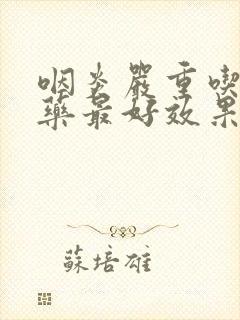 咽炎嚴重喫
藥最好效果
蘇培雄